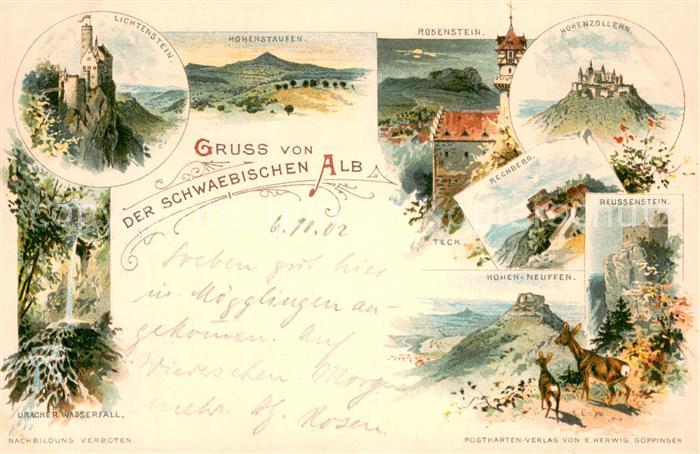 LICHTENSTEIN.
HOHENSTAUFEN.
ROSENSTEIN.
HOHENZOLLERN.
GRUSS VON
DER SCHWAEBISCHEN ALB
RECHBERG.
REUSSENSTEIN.
TECK
HOHEN-NEUFFEN.
6.10.02
Soeben gut hier
in Mögglingen an-
gekommen. Auf
Wiedersehen. Morgen
mehr.
URACHER WASSERFALL.
NACHBILDUNG VERBOTEN.
POSTKARTEN-VERLAG VON E. HERWIG, GÖPPINGEN